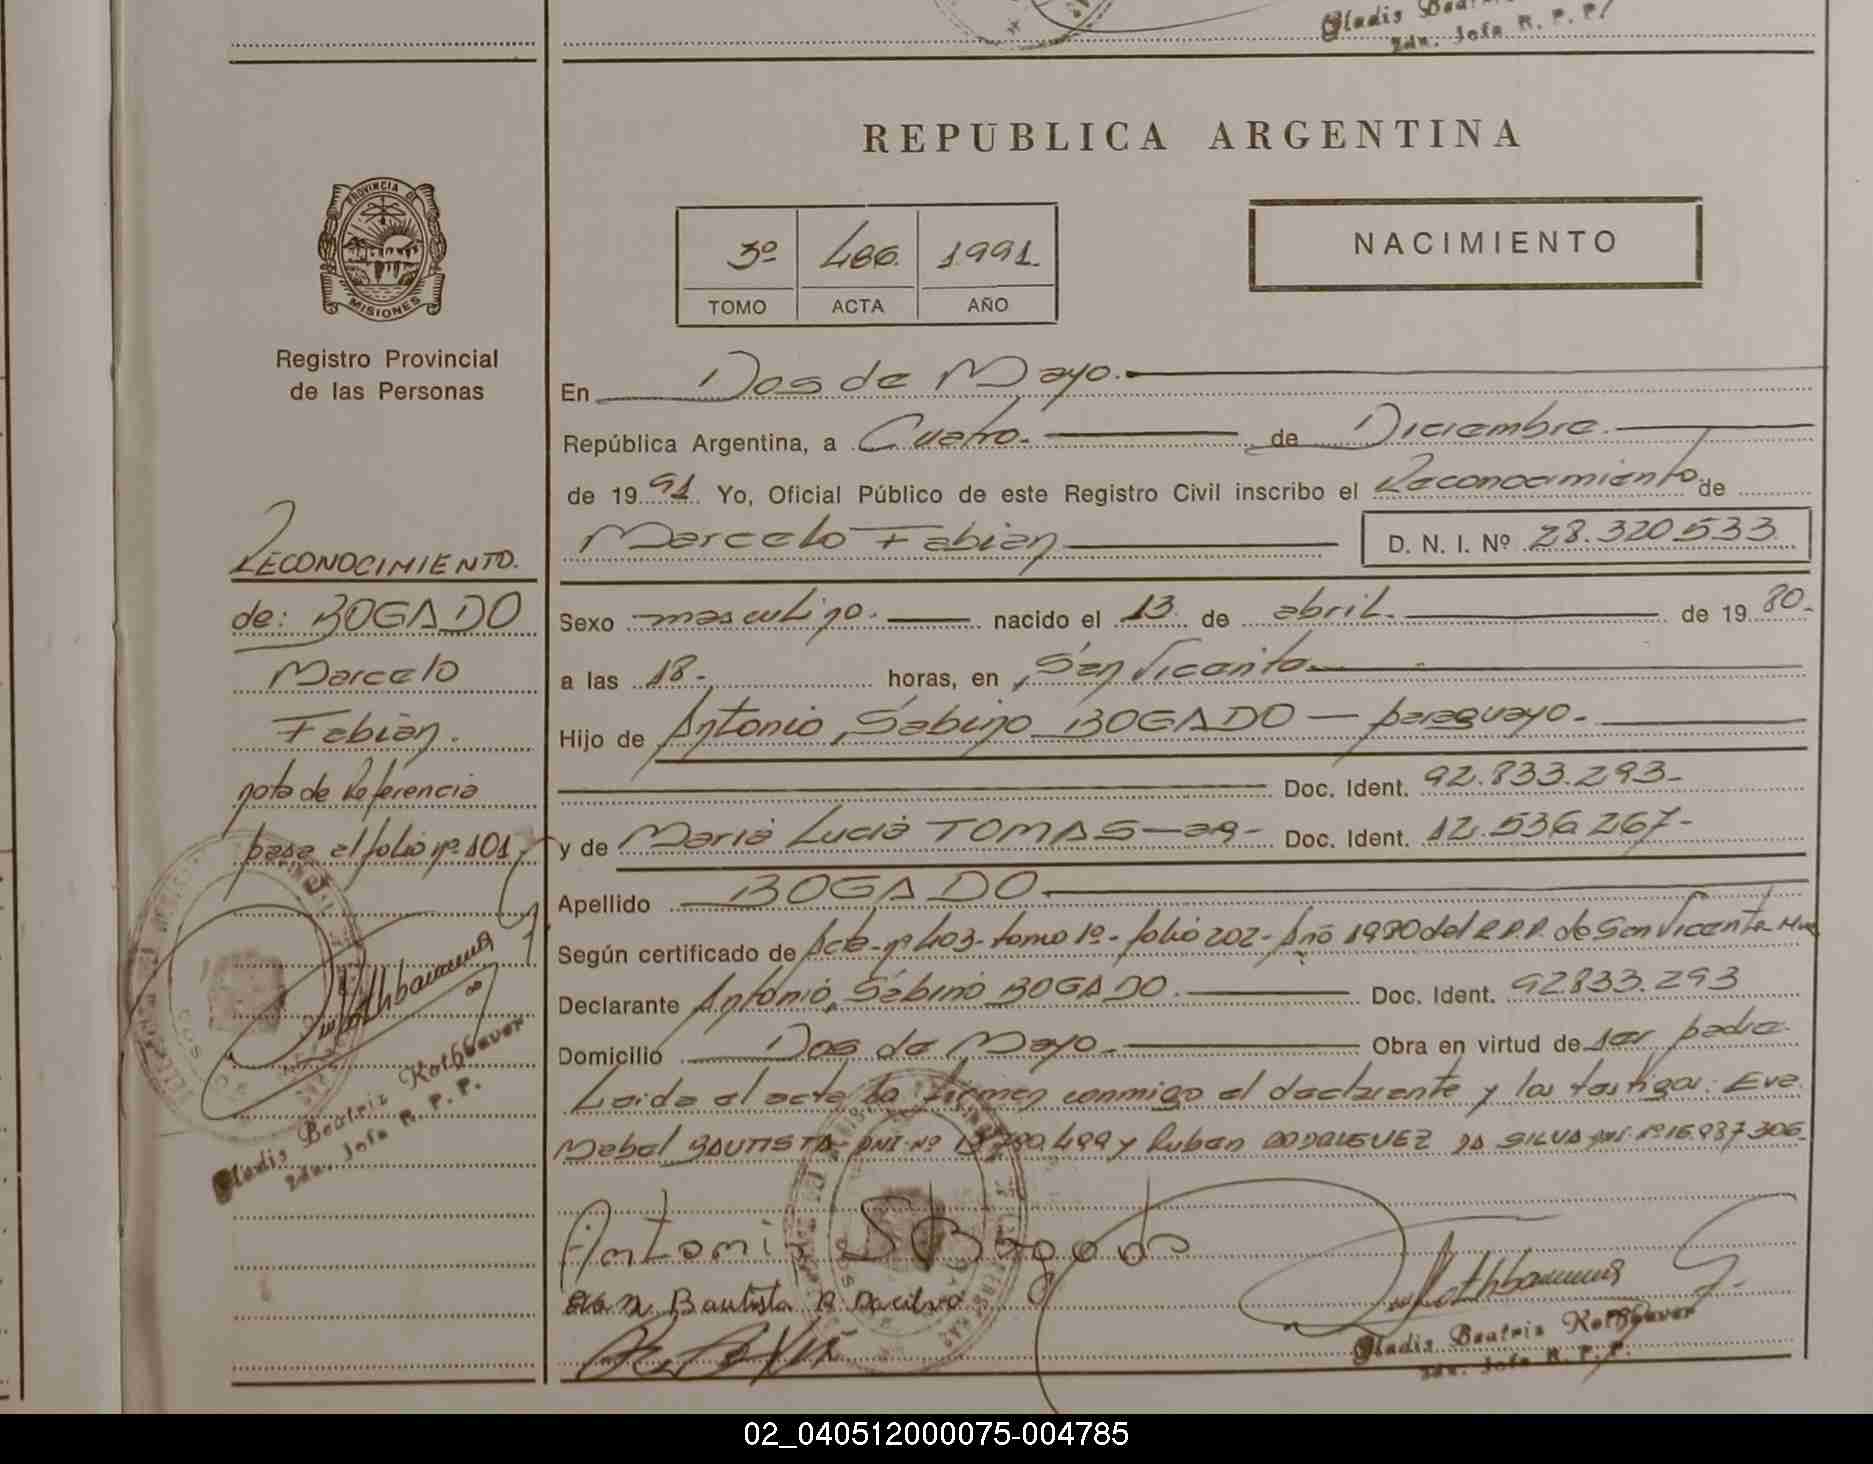 Gladis Beat
2da. Jefa R. P. P.
REPUBLICA ARGENTINA
PROVINCIA DE
MISIONES
Registro Provincial
de las Personas
3º 486. 1991.
TOMO ACTA AÑO
NACIMIENTO
En Dos de Mayo.
República Argentina, a Cuatro. de Diciembre.
de 1991 Yo, Oficial Público de este Registro Civil inscribo el Reconocimiento de
Marcelo Fabian D. N. I. Nº 28.320.533
Sexo masculino. nacido el 13 de abril. de 1980.
a las 18. horas, en San Vicente
Hijo de Antonio Sabino BOGADO — paraguayo.
Doc. Ident. 92.833.293-
y de Maria Lucia TOMAS - ar- Doc. Ident. 12.536.267-
Apellido BOGADO
Según certificado de Acta nº 403- tomo 1º- folio 202- Año 1980 del R.P.P. de San Vicente Mnes
Declarante Antonio Sabino BOGADO. Doc. Ident. 92.833.293
Domicilio Dos de Mayo. Obra en virtud de ser padre.
Leida el acta la firman conmigo el declarante y los testigos: Eva
Mabel BAUTISTA DNI Nº y Ruben RODRIGUEZ DA SILVA DNI Nº 16.987.306-
Antonio S Bogado
Eva M Bautista R Dacilva
Gladis Beatriz Rothbauer
2da. Jefa R. P. P.
RECONOCIMIENTO.
de: BOGADO
Marcelo
Fabian.
nota de Referencia
pasa al folio nº 101
Gladis Beatriz Rothbauer
2da. Jefa R. P. P.
02_040512000075-004785